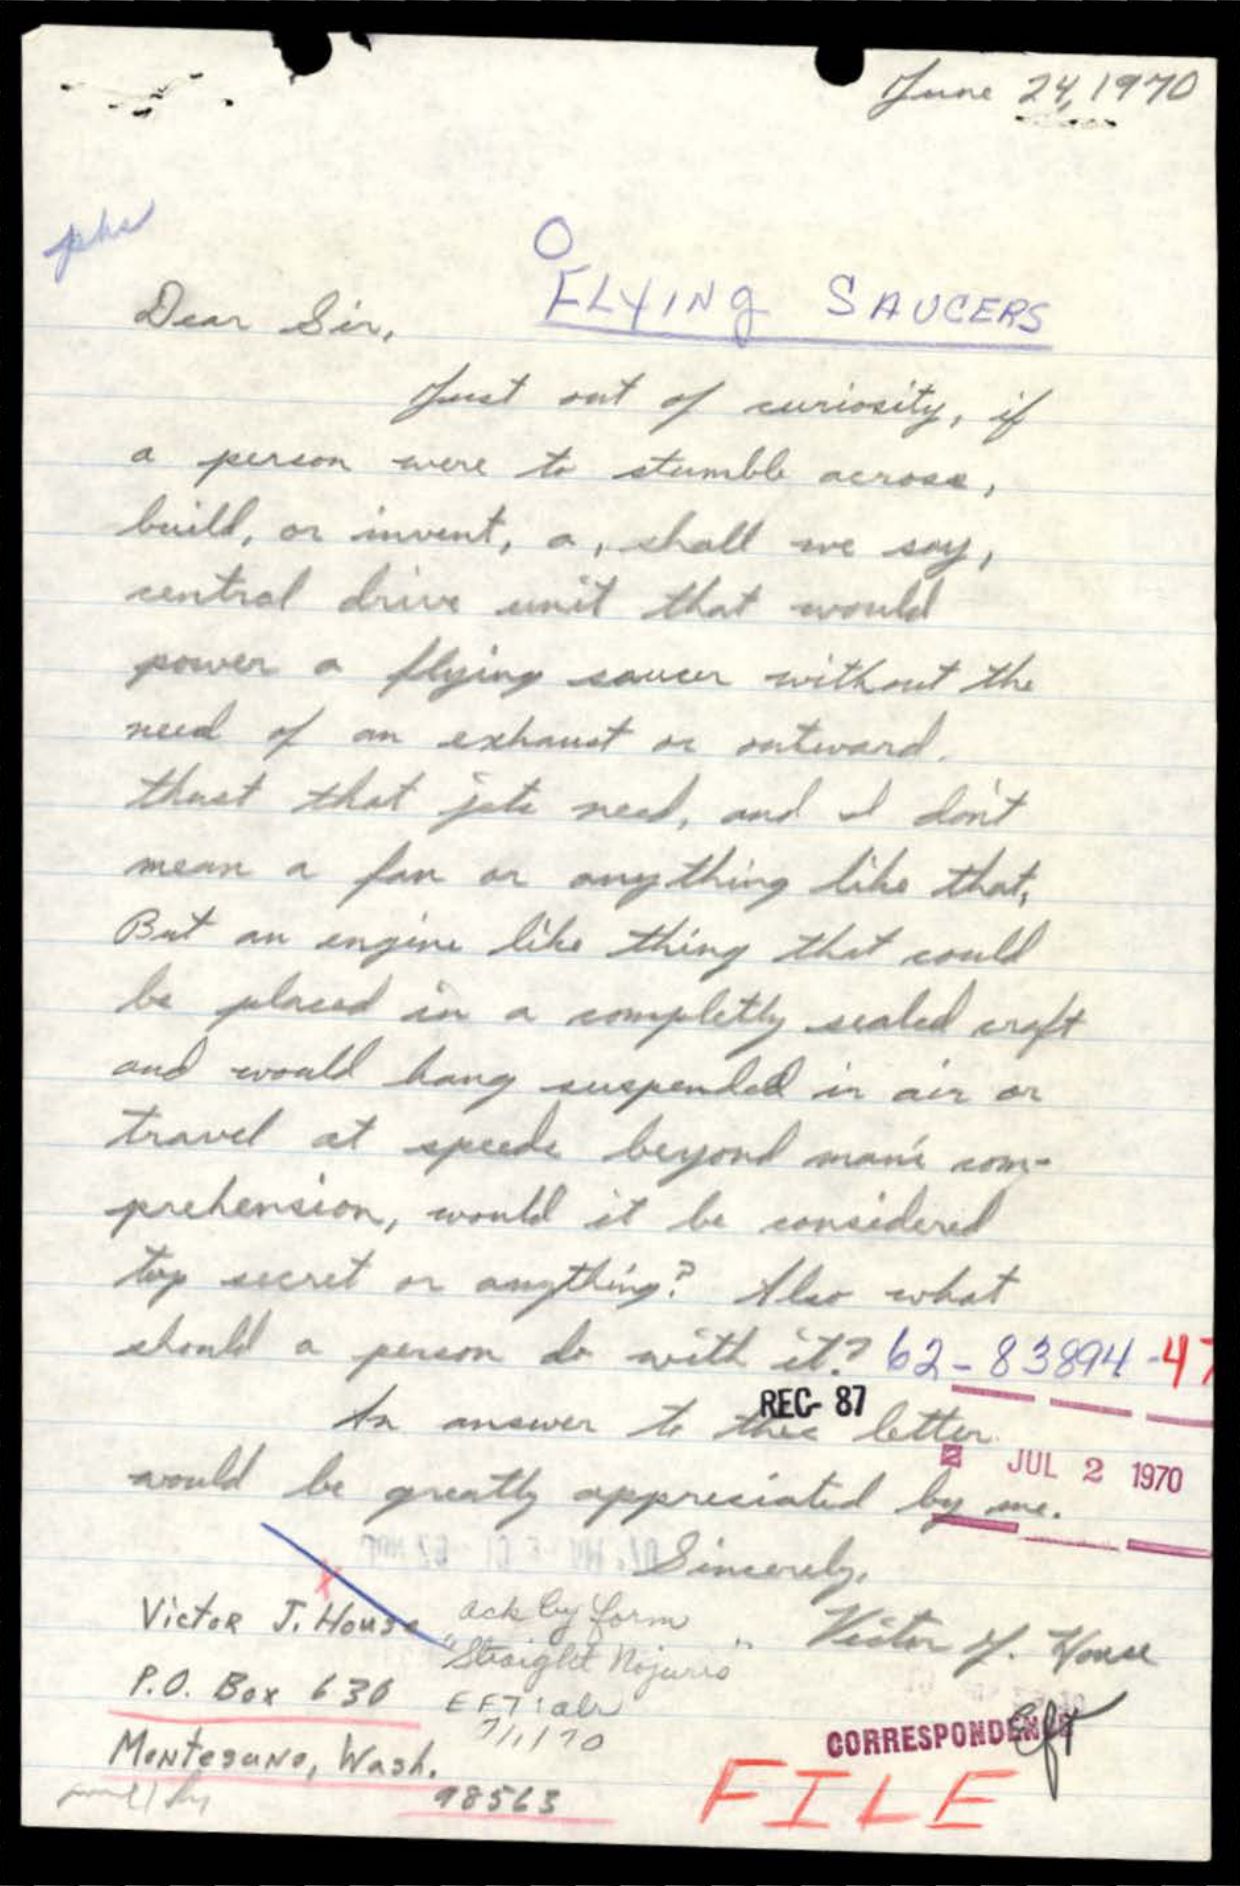 June 24, 1970
phs
O
FLYING SAUCERS
Dear Sir,
Just out of curiosity, if
a person were to stumble across,
build, or invent, a, shall we say,
central drive unit that would
power a flying saucer without the
need of an exhaust or outward.
thust that jets need, and I don't
mean a fan or anything like that,
But an engine like thing that could
be placed in a completly sealed craft
and would hang suspended in air or
travel at speeds beyond man's com-
prehension, would it be considered
top secret or anything? Also what
should a person do with it?
62-83894-47
REC- 87
An answer to this letter
2 JUL 2 1970
would be greatly appreciated by me.
Sincerely,
Victor J. House
Victor J. House
ack by form
"Straight Nojuris"
P.O. Box 630
EFT:
7/1/70
Montesano, Wash.
98563
CORRESPONDENCE
eft
FILE